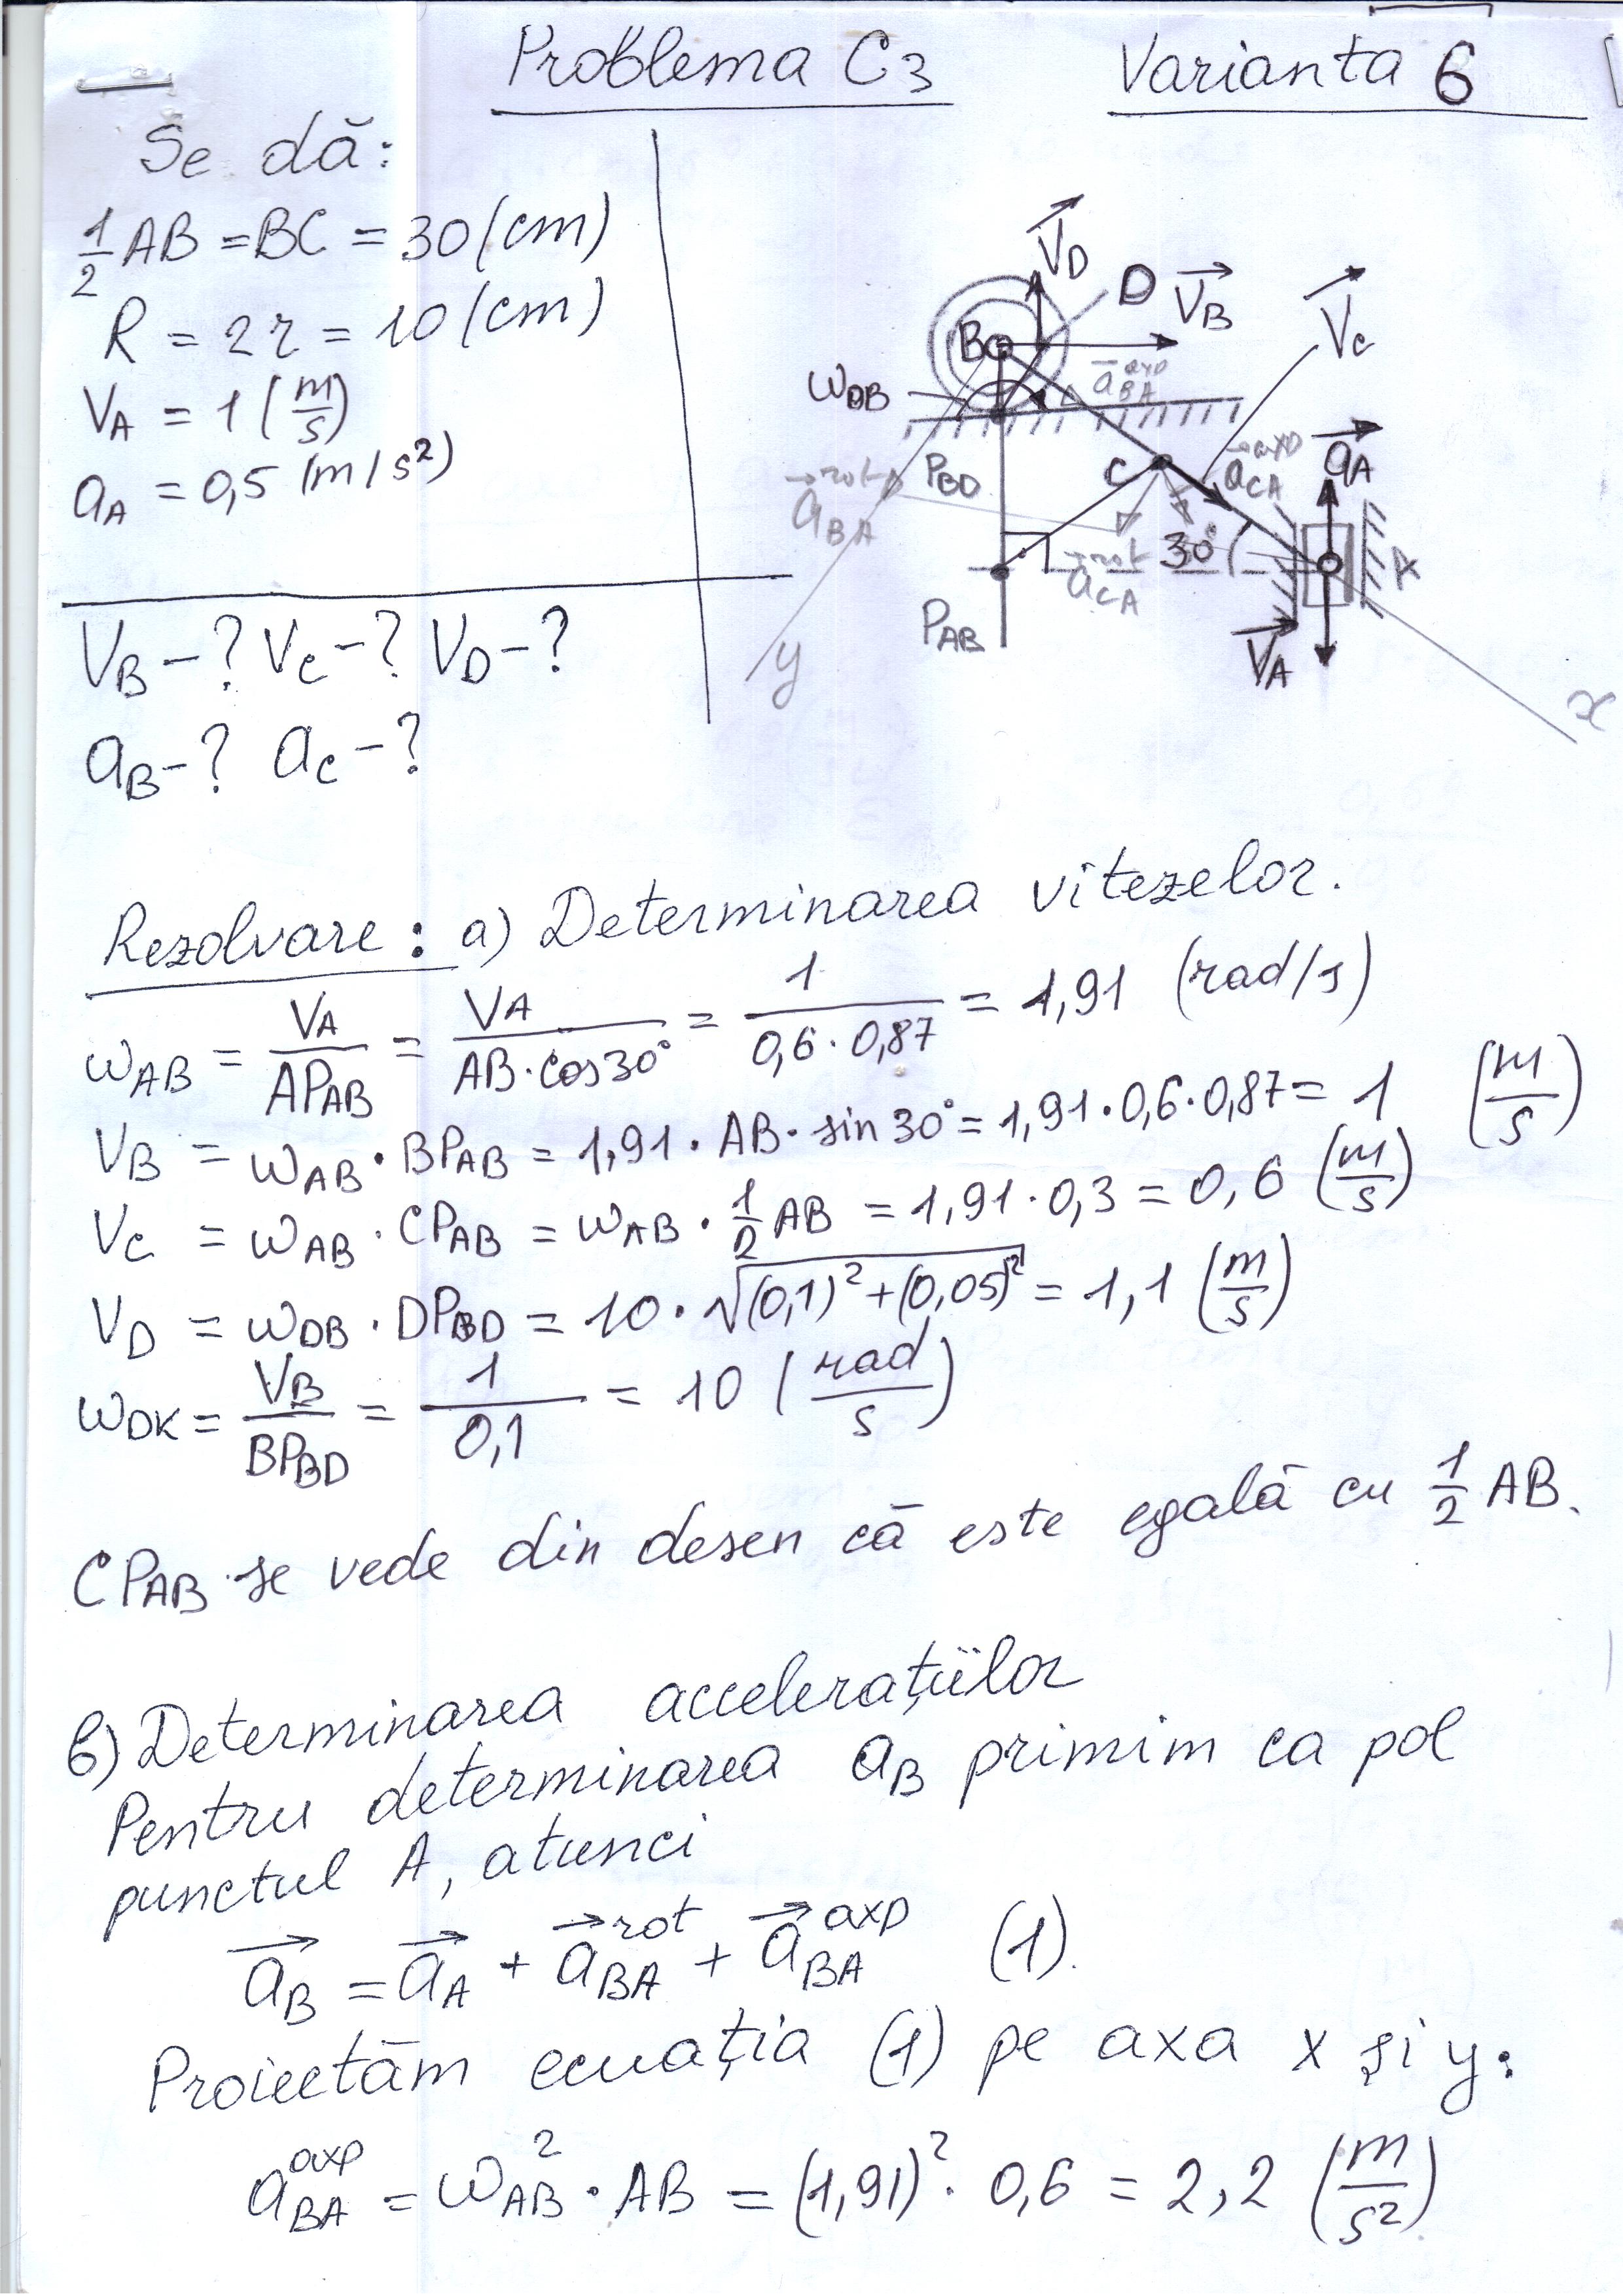 Problema C3 Varianta 6
Se dă:
1/2 AB = BC = 30 (cm)
R = 2r = 10 (cm)
VA = 1 (m/s)
aA = 0,5 (m/s²)
VB – ? VC – ? VD – ?
aB – ? aC – ?
VD
D VB
VC
B
aBA axp
ωDB
aCA axp
aA
C
PBD
aBA rot
30°
aCA rot
A
PAB
VA
y
x
Rezolvare: a) Determinarea vitezelor.
ωAB = VA/APAB = VA/(AB·cos30°) = 1/(0,6·0,87) = 1,91 (rad/s)
VB = ωAB · BPAB = 1,91 · AB · sin 30° = 1,91·0,6·0,87 = 1 (m/s)
VC = ωAB · CPAB = ωAB · 1/2 AB = 1,91 · 0,3 = 0,6 (m/s)
VD = ωDB · DPBD = 10 · √((0,1)² + (0,05)²) = 1,1 (m/s)
ωDK = VB/BPBD = 1/0,1 = 10 (rad/s)
CPAB se vede din desen că este egală cu 1/2 AB.
b) Determinarea accelerațiilor
Pentru determinarea aB primim ca pol
punctul A, atunci
aB = aA + aBA rot + aBA axp (1).
Proiectăm ecuația (1) pe axa x și y:
aBA axp = ωAB² · AB = (1,91)² · 0,6 = 2,2 (m/s²)